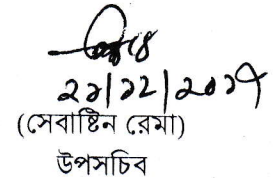 ২১/১২/২০১৭
(সেবাষ্টিন রেমা)
উপসচিব